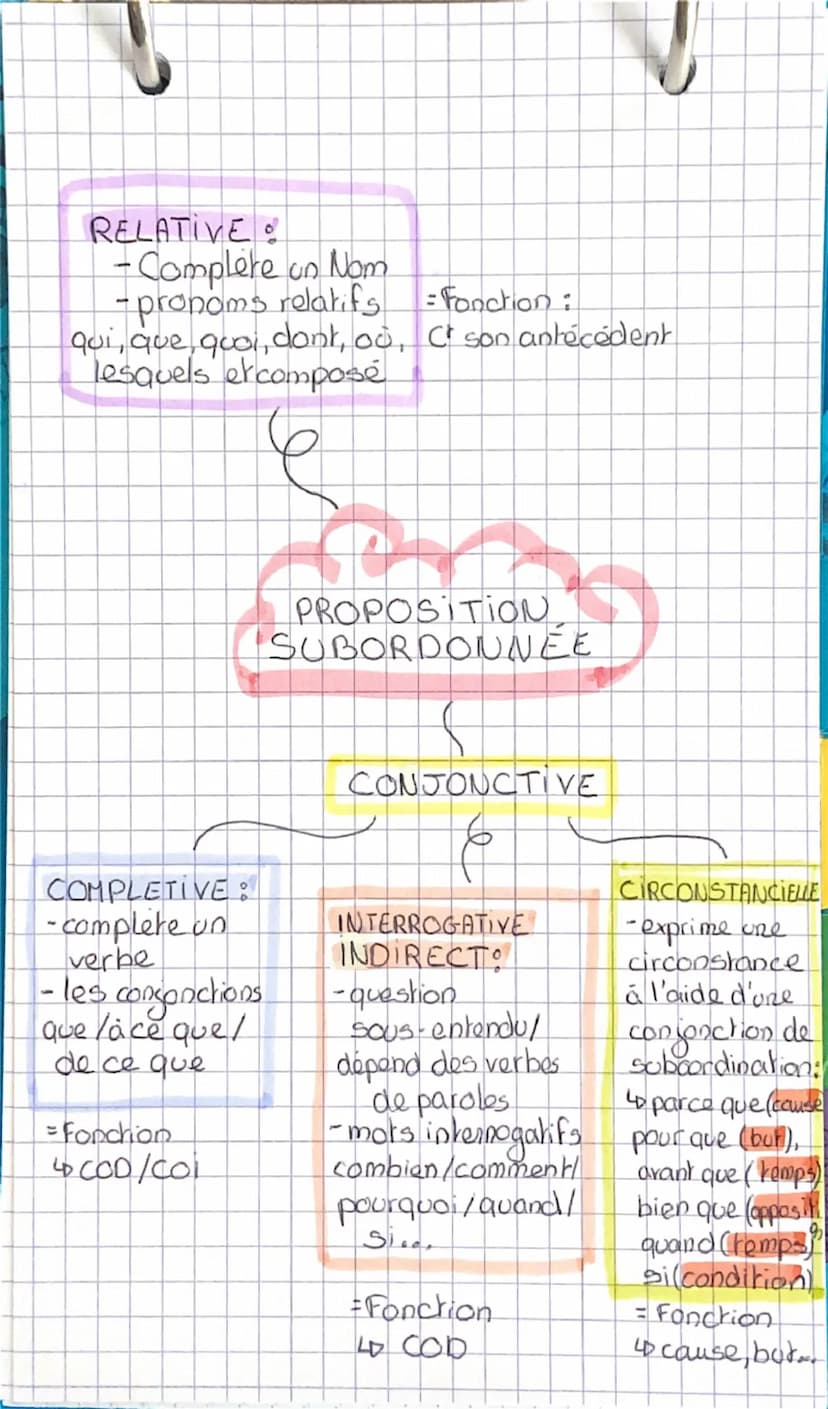 RELATIVE :
- Complète un Nom
- pronoms relatifs
qui, que, quoi, dont, où,
lesquels et composé
= Fonction :
Ct son antécédent
PROPOSITION
SUBORDONNÉE
CONJONCTIVE
COMPLETIVE :
- complète un
verbe
- les conjonctions
que / à ce que /
de ce que
= Fonction
↳ COD / COI
INTERROGATIVE
INDIRECT :
- question
sous-entendu /
dépend des verbes
de paroles
- mots interrogatifs
combien / comment /
pourquoi / quand /
si...
= Fonction
↳ COD
CIRCONSTANCIELLE
- exprime une
circonstance
à l'aide d'une
conjonction de
subordination :
↳ parce que (cause
pour que (but),
avant que (temps)
bien que (opposit°)
quand (temps)
si (condition)
= Fonction
↳ cause, but...